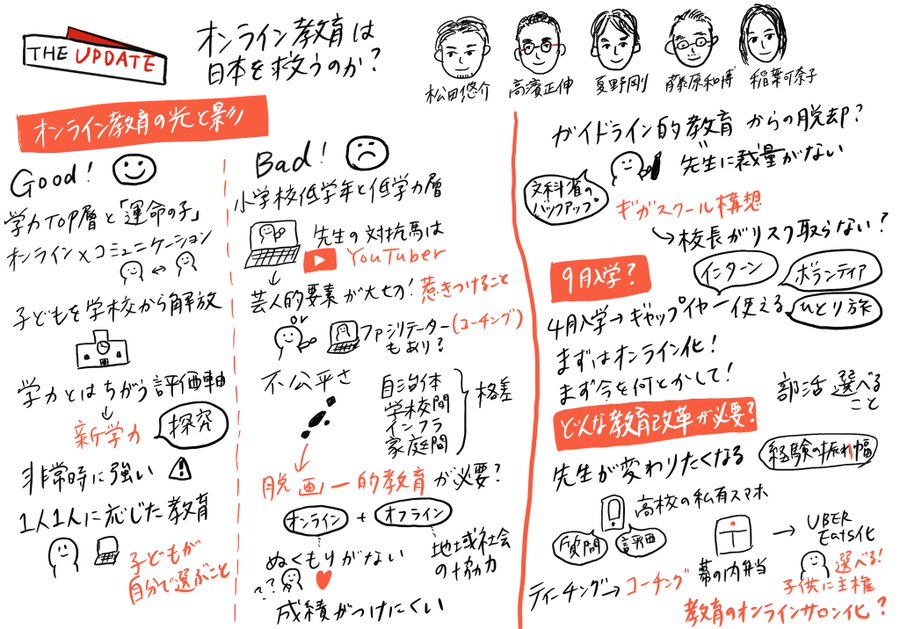 THE UPDATE
オンライン教育は
日本を救うのか?
松田悠介
高濱正伸
夏野剛
藤原和博
稲葉可奈子
オンライン教育の光と影
Good!
学力TOP層と「運命の子」
オンライン×コミュニケーション
子どもを学校から解放
学力とはちがう評価軸
新学力
探究
非常時に強い
1人1人に応じた教育
子どもが
自分で選ぶこと
Bad!
小学校低学年と低学力層
先生の対抗馬は
YouTuber
芸人的要素が大切!惹きつけること
or
ファシリテーター(コーチング)
もあり?
不公平さ
自治体
学校間
インフラ
家庭間
格差
脱画一的教育が必要?
オンライン+オフライン
ぬくもりがない
??
地域社会
の協力
成績がつけにくい
ガイドライン的教育からの脱却?
先生に裁量がない
文科省の
バックアップ
ギガスクール構想
→校長がリスク取らない?
9月入学?
インターン
ボランティア
ひとり旅
4月入学→ギャップイヤー使える
まずはオンライン化!
まず今を何とかして!
部活選べる
こと
どんな教育改革が必要?
先生が変わりたくなる
経験の振れ幅
高校の私有スマホ
質問
評価
ティーチング→コーチング
幕の内弁当
→
UBER
Eats化
選べる!
子供に主権
教育のオンラインサロン化?